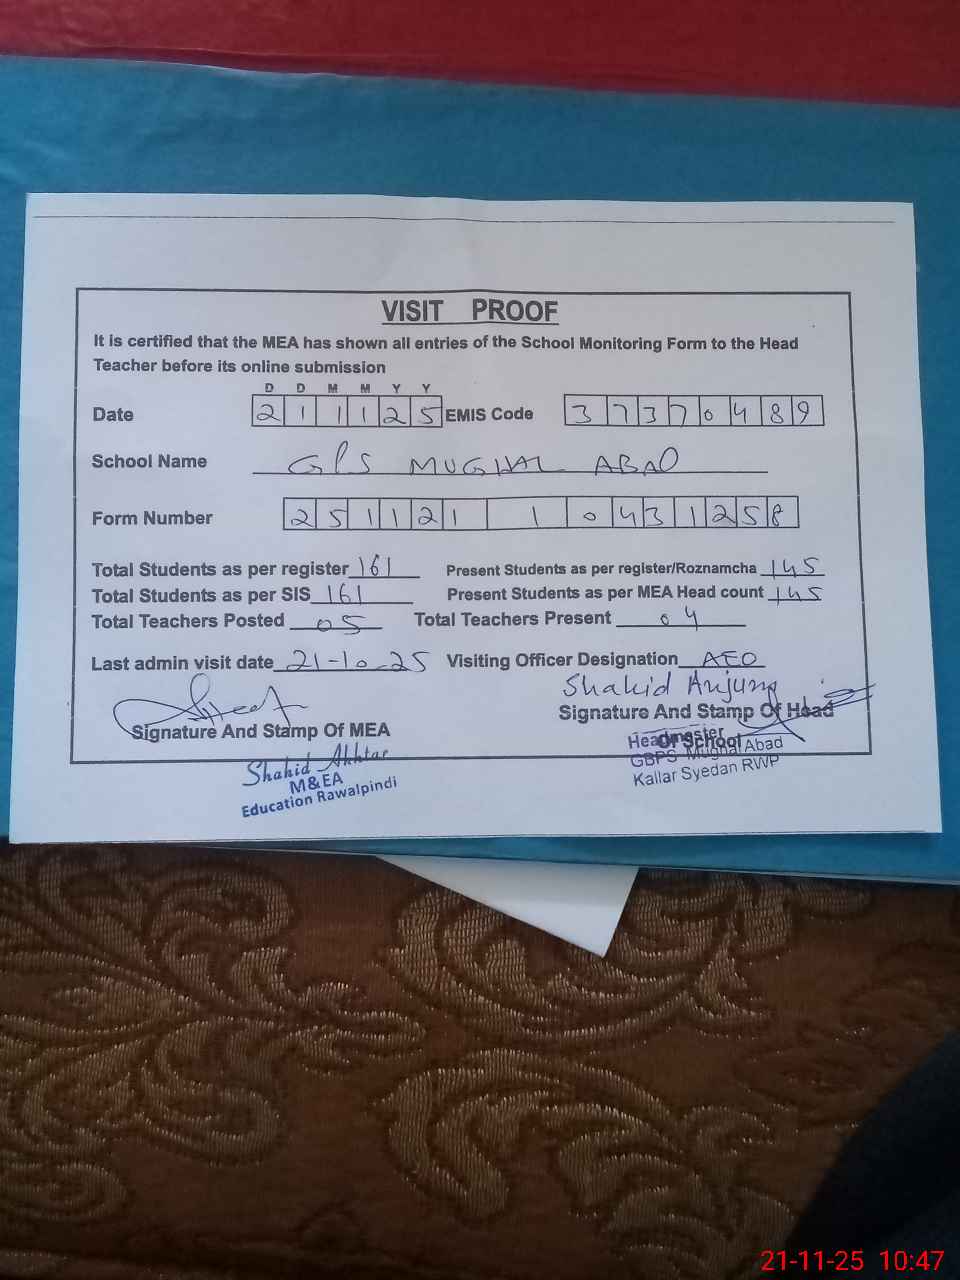 VISIT PROOF
It is certified that the MEA has shown all entries of the School Monitoring Form to the Head
Teacher before its online submission
D D M M Y Y
Date 2 1 1 1 2 5 EMIS Code 3 7 3 7 0 4 8 9
School Name GPS MUGHAL ABAD
Form Number 2 5 1 1 2 1 1 0 4 3 1 2 5 8
Total Students as per register 161 Present Students as per register/Roznamcha 145
Total Students as per SIS 161 Present Students as per MEA Head count 145
Total Teachers Posted 05 Total Teachers Present 04
Last admin visit date 21-10-25 Visiting Officer Designation AEO
Shahid Anjum
Signature And Stamp Of MEA Signature And Stamp Of Head
Of School
Shahid Akhtar
M&EA
Education Rawalpindi
Headmaster
GBPS Mughal Abad
Kallar Syedan RWP
21-11-25 10:47